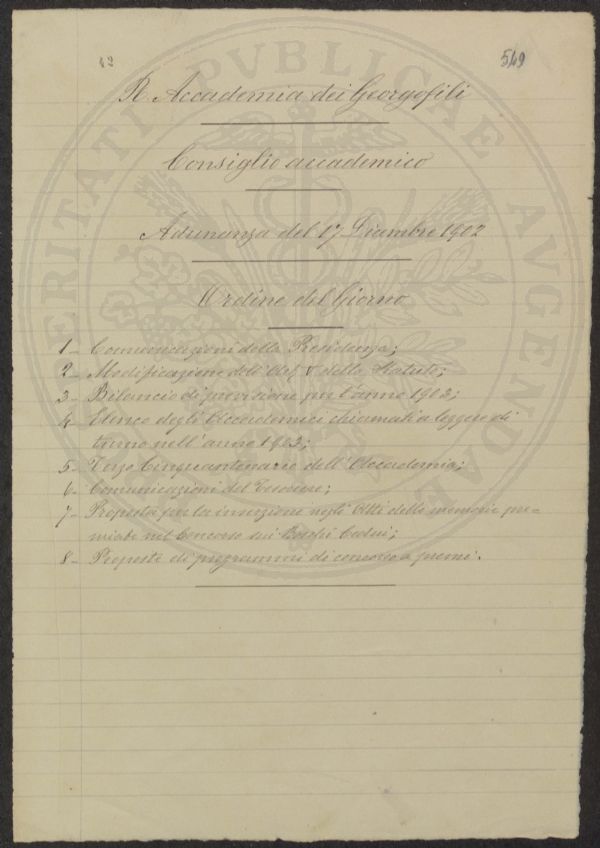 42
549
R. Accademia dei Georgofili
Consiglio accademico
Adunanza del 17 Dicembre 1902
Ordine del Giorno
1 - Comunicazioni della Presidenza;
2 - Modificazione dell'Art. V dello Statuto;
3 - Bilancio di previsione per l'anno 1903;
4 - Elenco degli Accademici chiamati a leggere di
turno nell'anno 1903;
5 - Terzo Cinquantenario dell'Accademia;
6 - Comunicazioni del Tesoriere;
7 - Proposta per la inserzione negli Atti delle memorie pre-
miate nel Concorso sui Boschi Cedui;
8 - Proposte di programmi di concorso a premi.
PVBLICAE
AVGENDAE